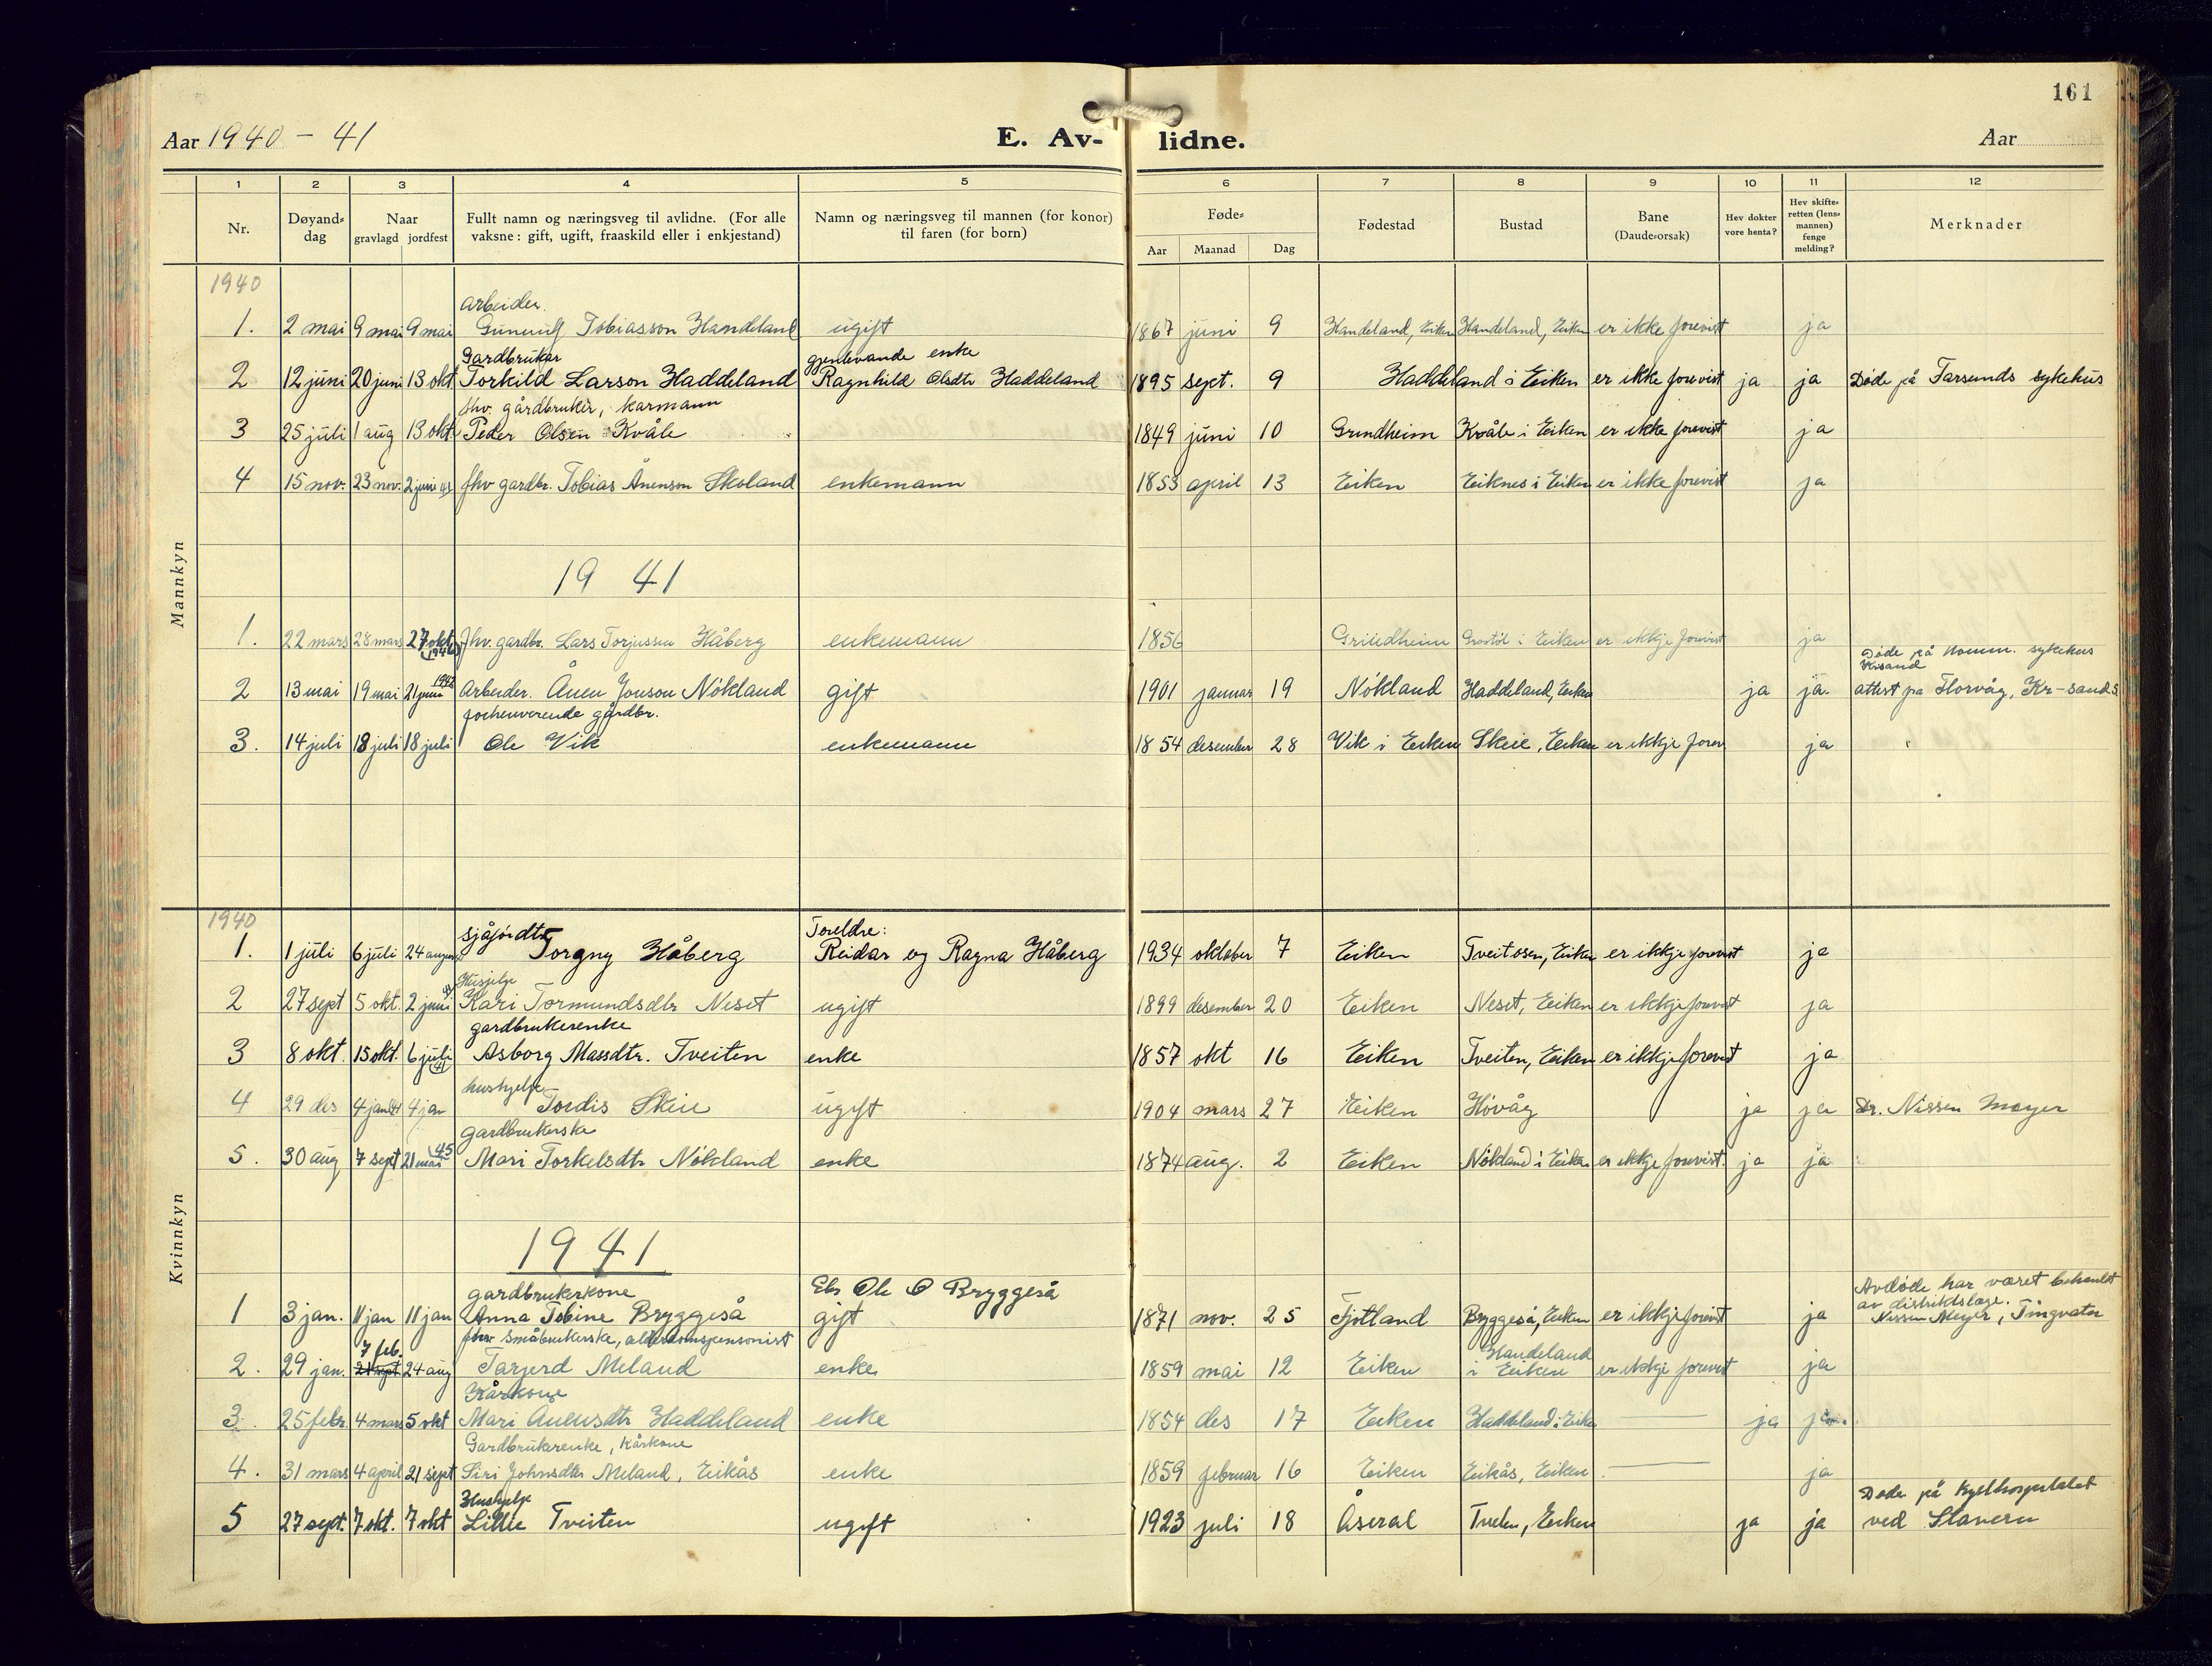 161
Aar 1940 - 41 E. Av- lidne. Aar
1 2 3 4 5 6 7 8 9 10 11 12
Nr. Døyand-dag Naar gravlagd jordfest Fullt namn og næringsveg til avlidne. (For alle vaksne: gift, ugift, fraaskild eller i enkjestand) Namn og næringsveg til mannen (for konor) til faren (for born) Føde- Aar Maanad Dag Fødestad Bustad Bane (Daude-orsak) Hev dokter vore henta? Hev skifte-retten (lens-mannen) fenge melding? Merknader
Mannkyn
1940
arbeider
1. 2 mai 9 mai 9 mai Tobiasson Handeland ugift 1867 juni 9 Handeland, Eiken Handeland, Eiken er ikke forevist ja
Gardbrukar gjenlevande enke
2 12 juni 20 juni 13 okt Torkild Larson Haddeland Ragnhild Olsdtr Haddeland 1895 sept. 9 Haddeland i Eiken er ikke forevist ja ja Døde på Farsunds sykehus
fhv. gårdbruker, karmann
3 25 juli 1 aug 13 okt Peder Olsen Kvåle 1849 juni 10 Grindheim Kvåle i Eiken er ikke forevist ja
4 15 nov. 23 nov. 2 juni 41 fhv gardbr. Tobias Ånenson Skoland enkemann 1853 april 13 Eiken Eiknes i Eiken er ikke forevist ja
19 41
1. 22 mars 28 mars 27 okt fhv. gardbr. Lars Torjussen Håberg enkemann 1856 Grindheim i Eiken er ikkje forevist ja
Døde på Komm. sykehus Krsand
2 13 mai 19 mai 21 juni Arbeider. Ånen Jonson Nökland gift 1901 januar 19 Nökland Haddeland, Eiken ja ja. attest fra Florvåg, Kr-sand S.
forhenverende gårdbr.
3. 14 juli 18 juli 18 juli Ole Vik enkemann 1854 desember 28 Vik i Eiken Skeie, Eiken er ikkje forev ja
Kvinnkyn
1940
Foreldre:
1. 1 juli 6 juli 24 august Torgny Håberg Reidar og Ragna Håberg 1934 oktober 7 Eiken Tveitosen, Eiken er ikkje forevist ja
Husjelp
2 27 sept 5 okt. 2 juni 41 Kari Tormundsdtr Neset ugift 1899 desember 20 Eiken Neset, Eiken er ikkje forevist ja
gardbrukerenke
3 8 okt. 15 okt. 6 juli (41) Asborg Massdtr. Tveiten enke 1857 okt 16 Eiken Tveiten, Eiken er ikkje forevist ja
hushjelp
4 29 des 4 jan 41 4 jan Tordis Skeie ugift 1904 mars 27 Eiken Hövåg ja ja Dr. Nissen Meyer
gardbrukerske
5. 30 aug 7 sept 21 mai 45 Mari Torkelsdtr Nökland enke 1874 aug. 2 Eiken Nökland i Eiken er ikkje forevist. ja ja
1941
gardbrukerkone Ole O Bryggeså Avdøde har været behandlet
av distriktslæge.
1 3 jan. 11 jan 11 jan Anna Tobine Bryggeså gift 1871 nov. 25 Fjotland Bryggeså, Eiken er ikkje forevist ja Nissen Meyer, Tingvatn
fhv. Småbrukerske, alderdomspensonist
7 feb. Handeland
2. 29 jan. 24 aug Tarjerd Meland enke 1859 mai 12 Eiken i Eiken er ikkje forevist ja
Kårkone
3. 25 febr. 4 mars 5 okt Mari Ånensdtr Haddeland enke 1854 des 17 Eiken Haddeland i Eiken ja ja.
Gardbrukerenke, kårkone
4. 31 mars 4 april 21 sept Siri Johnsdtr Meland, Eikås enke 1859 februar 16 Eiken Eikås, Eiken ja
Hushjelp Døde på
5 27 sept. 7 okt. 7 okt Lillie Tveiten ugift 1923 juli 18 Åseral Eiken ja ja ved Stavern